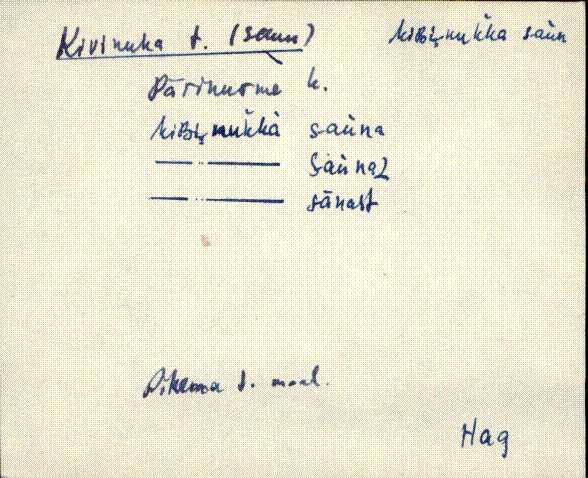 Kivinuka t. (saun) kiʙi̬nuk̆ka saùn
Pärinurme k.
kiʙi̬nuk̆kà saùna
—„— saùnaʟ
—„— sānast
Pikema t. maal.
Hag